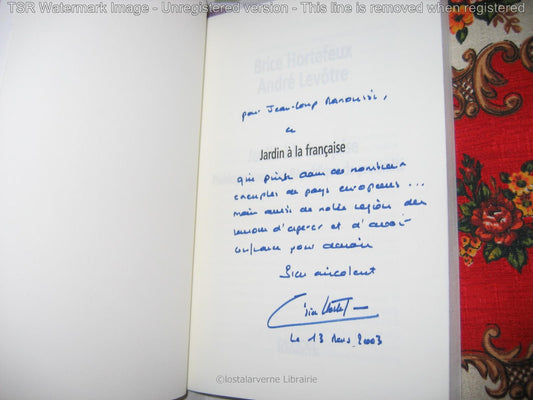 TSR Watermark Image - Unregistered version - This line is removed when registered
Brice Hortefeux
André Levôtre
pour Jean-Loup
ce
Jardin à la française
qui puise dans de nombreux
exemples de pays européens ...
mais aussi de notre région des
d'espérer et d'avoir
confiance pour demain
Bien
Le 13 Mars 2003
©lostalarverne Librairie